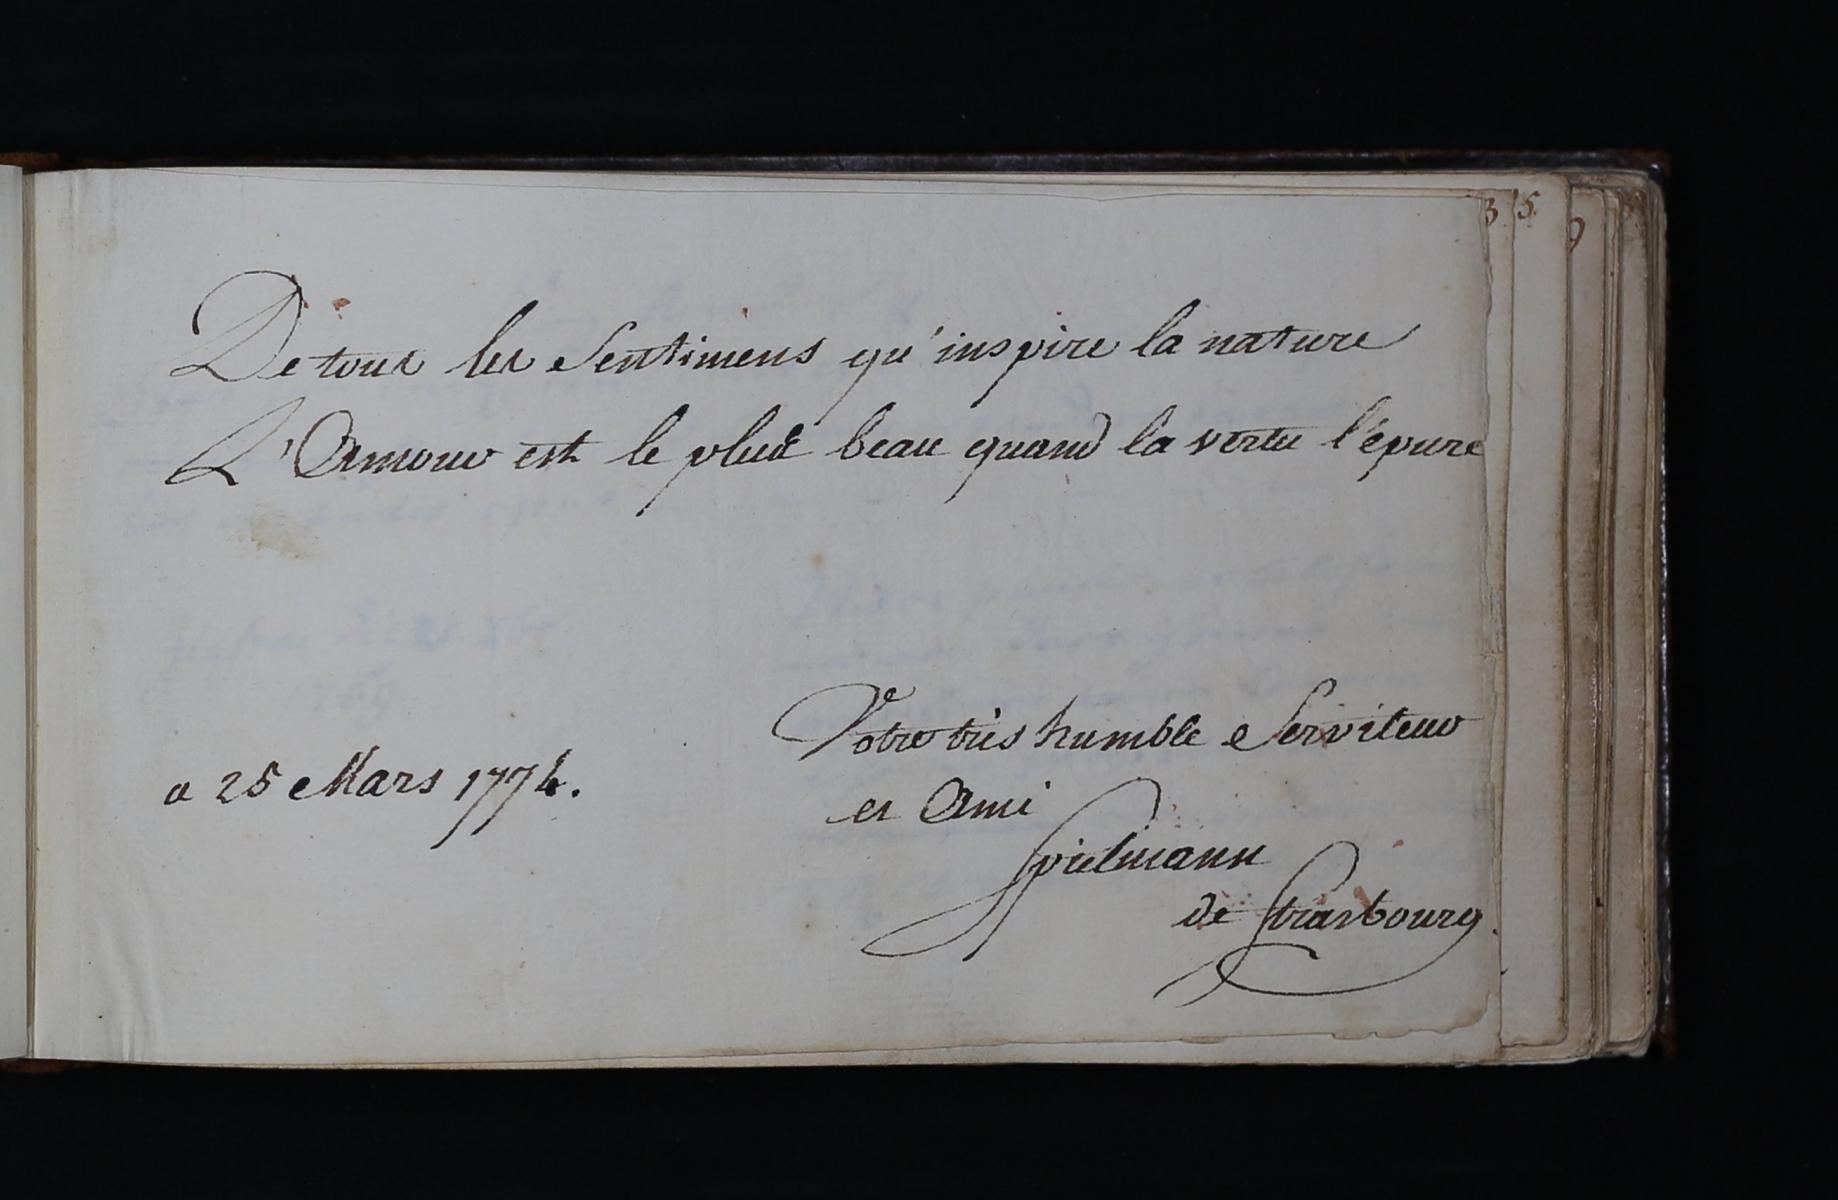 3 5
9
De tous les Sentimens qu'inspire la nature
L'Amour est le plus beau quand la vertu l'épure
Votre très humble Serviteur
a 25 Mars 1774.
et Ami
Spielmann
de Strasbourg.